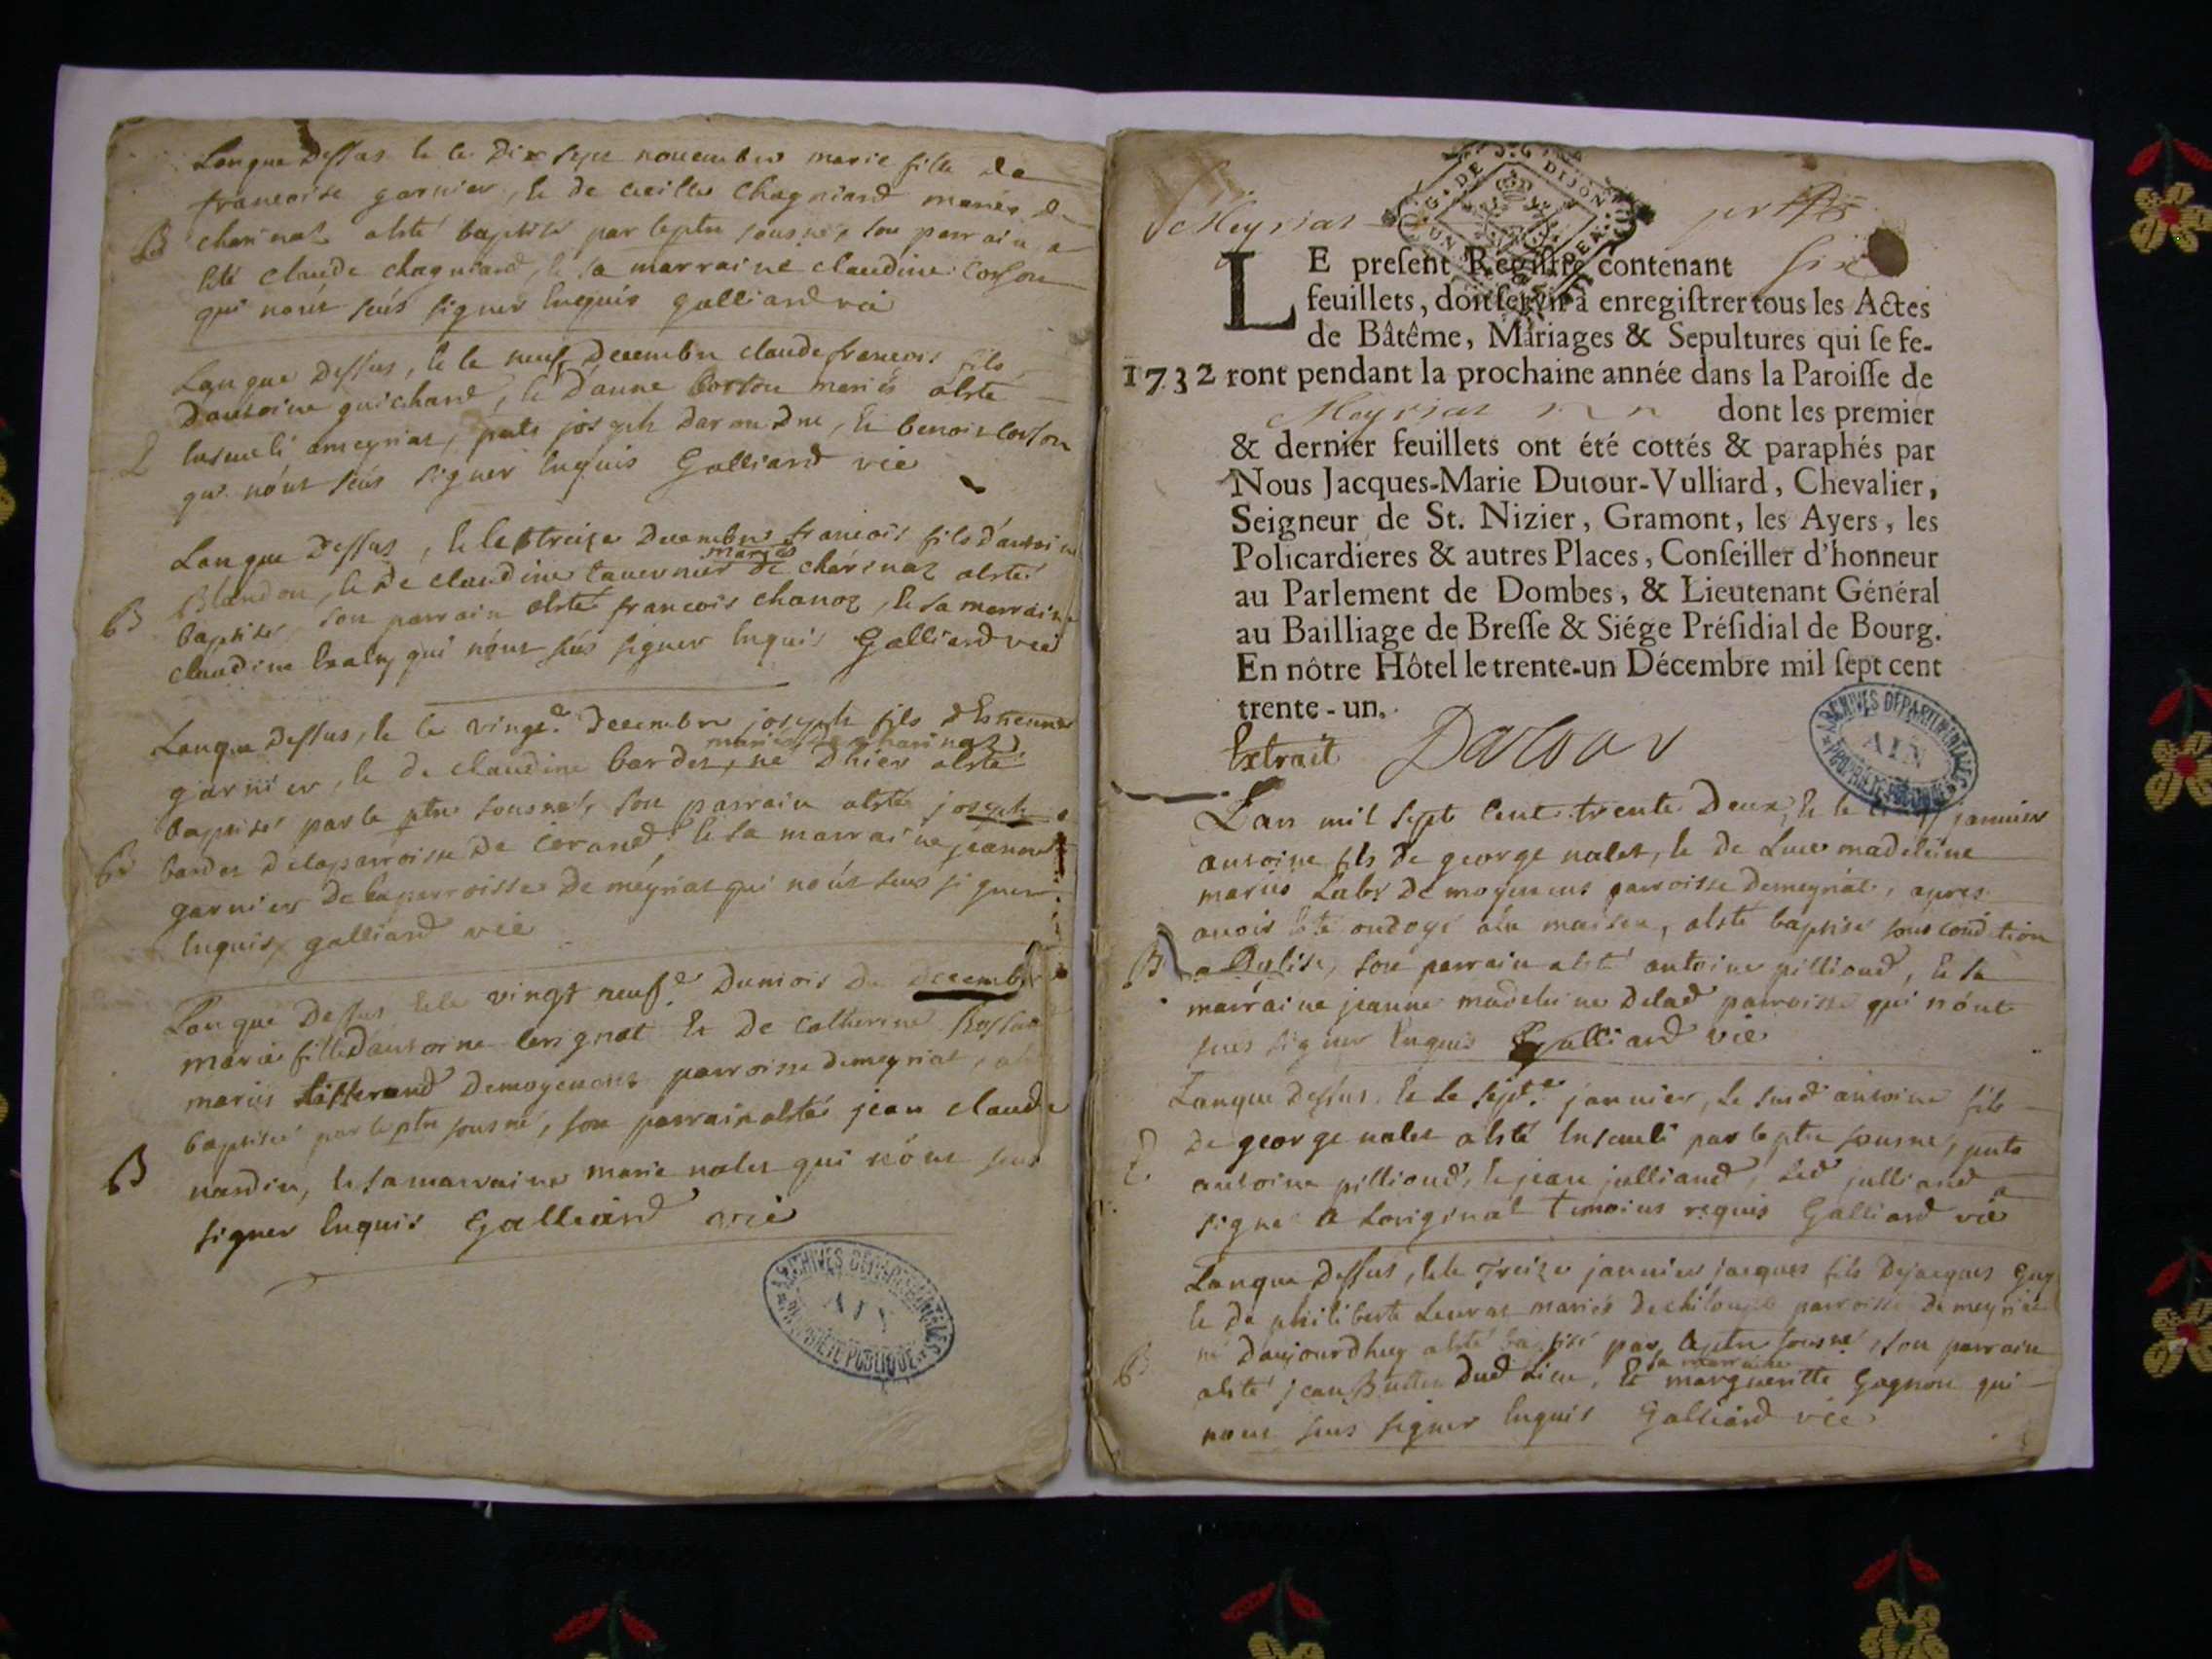 Lan que dessus le le Dix sept novembre marie fille de
francoise garnier, le de cecille Chagniard mariés de
B charinaz alsté baptisée par le ptre sousné, son parrain a
Esté claude chagniard, le sa marraine claudine corson
qui nónt seus signer Enquis galliard vic
Lan que Dessus, le le neuf Decembre claude francois fils
Dantoine guichard, le Danne corson mariés alsté
Enseveli ameyriat, pnts joseph, le benoit corson
qui nónt seus signer Enquis Galliard vic
Lan que Dessus, le le treize Decembre francois fils d'antoine
mariés
Blandon, le de claudine tavernier de charinaz alsté
B baptisé, son parrain alsté francois chanoz, le sa marraine
claudine qui nónt seus signer Enquis Galliard vic
Lan que Dessus, le le vingte Decembre joseph fils dEstienne
mariés de charinaz
garnier, le de claudine bardet, né Dhier alsté
baptisé par le ptre sousné, son parrain alsté joseph
B bardet delaparroisse De Cerand, le sa marraine jeanne
garnier De la parroisse De méyriat qui nónt seus signer
Enquis galliard vic
Lan que Dessus le le vingt neufe Dumois De Decembre
marie fille Dantoine lerignat Et De Catherine
mariés Demoyenens parroisse demeyriat,
baptisée par le ptre sousné, son parrain alsté jean claude
B nardin, le sa marraine marie nalet qui nónt seus
signer Enquis Galliard vic
ARCHIVES DÉPARTEMENTALES
AIN
PROPRIÉTÉ PUBLIQUE
Meyriat
G. DE DIJON
UN
LE present Registre contenant six
feuillets, doit servir à enregistrer tous les Actes
de Bâtême, Mariages & Sepultures qui se fe-
1732 ront pendant la prochaine année dans la Paroisse de
Meyriat dont les premier
& dernier feuillets ont été cottés & paraphés par
Nous Jacques-Marie Dutour-Vulliard, Chevalier,
Seigneur de St. Nizier, Gramont, les Ayers, les
Policardieres & autres Places, Conseiller d'honneur
au Parlement de Dombes, & Lieutenant Général
au Bailliage de Bresse & Siége Présidial de Bourg.
En nôtre Hôtel le trente-un Décembre mil sept cent
trente-un.
Extrait Dutour
ARCHIVES DÉPARTEMENTALES
AIN
PROPRIÉTÉ PUBLIQUE
Lan mil sept Cent trente Deux, Et le janvier
antoine fils de george nalet, le de Luce madeleine
mariés De moyenens parroisse Demeyriat, apres
avoir Esté ondoyé ala maison, alsté baptisé sous condition
B a Leglise, son parrain alsté antoine pillioud, le sa
marraine jeanne madeleine Delad parroisse qui nónt
seus signer Enquis Galliard vic
Lan que Dessus, Et le septe janvier, le susd antoine fils
De george nalet alsté Enseveli par le ptre sousné, pnts
antoine pillioud, le jean julliand, led julliand
signé A Loriginal temoins requis Galliard vic
Lan que Dessus, le le Treize janvier jacques fils Dejacques Guy
le De philiberte Leurat mariés Dechiloup parroisse De meyriat
né Daujourdhuy alsté baptisé par le ptre sousné, son parrain
sa marraine
B alsté jean dud Lieu, Et margueritte Gagnon qui
nont seus signer Enquis Galliard vic